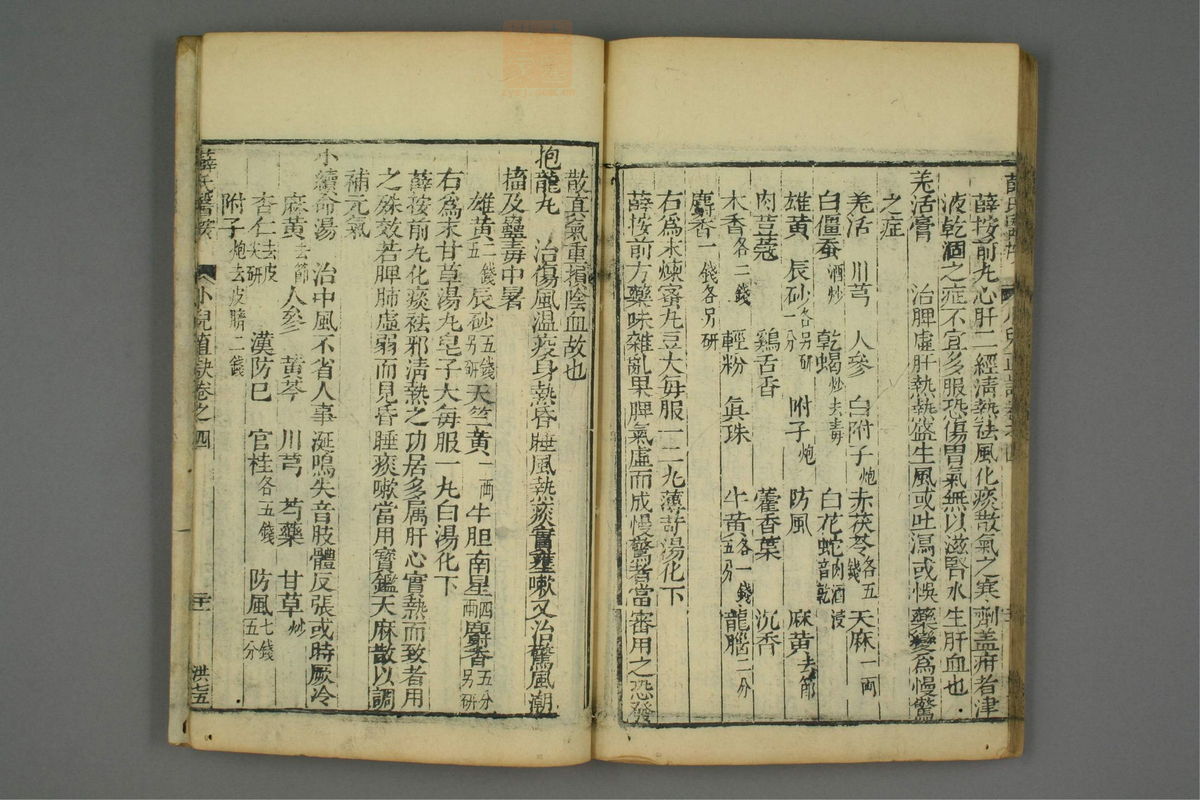 薛按前丸心肝二經清熱祛風化痰散氣之㑹劑盖疳者津
液乾涸之症不宜多服恐傷胃氣無以滋腎水生肝血也
羌活膏 治脾虛肝熱熱盛生風或吐瀉或悞藥變爲慢驚
之症
羌活 川芎 人參 白附子炮 赤茯苓各五錢 天麻一兩
白僵蚕酒炒 乾蝎炒去毒 白花蛇酒浸
雄黃 辰砂各另研一分 附子炮 防風 麻黃去節
肉荳蔻 鷄舌香 藿香葉 沉香
木香各二錢 輕粉 眞珠 牛黃各一錢五分 龍腦二分
麝香一錢各另研
右爲末煉蜜丸豆大每服一二丸薄荷湯化下
薛按前方藥味雜亂果脾氣虛而成慢驚者當審用之恐發
散真氣重損陰血故也
抱龍丸 治傷風溫疫身熱昏睡風熱痰實壅嗽又治驚風潮
搐及蠱毒中暑
雄黃二錢五 辰砂五錢另研 天竺黃一兩 牛胆南星四兩 麝香五分另研
右爲末甘草湯丸皂子大每服一丸白湯化下
薛按前丸化痰祛邪清熱之功居多属肝心實熱而致者用
之殊效若脾肺虛弱而見昏睡痰嗽當用寶鑑天麻散以調
補元氣
小續命湯 治中風不省人事涎鳴失音肢體反張或時厥冷
麻黃去節 人參 黃芩 川芎 芍藥 甘草炒
杏仁去皮尖研 漢防巳 官桂各五錢 防風七錢五分
附子炮去皮臍二錢
薛氏醫按 小兒直訣卷之四 洪七五